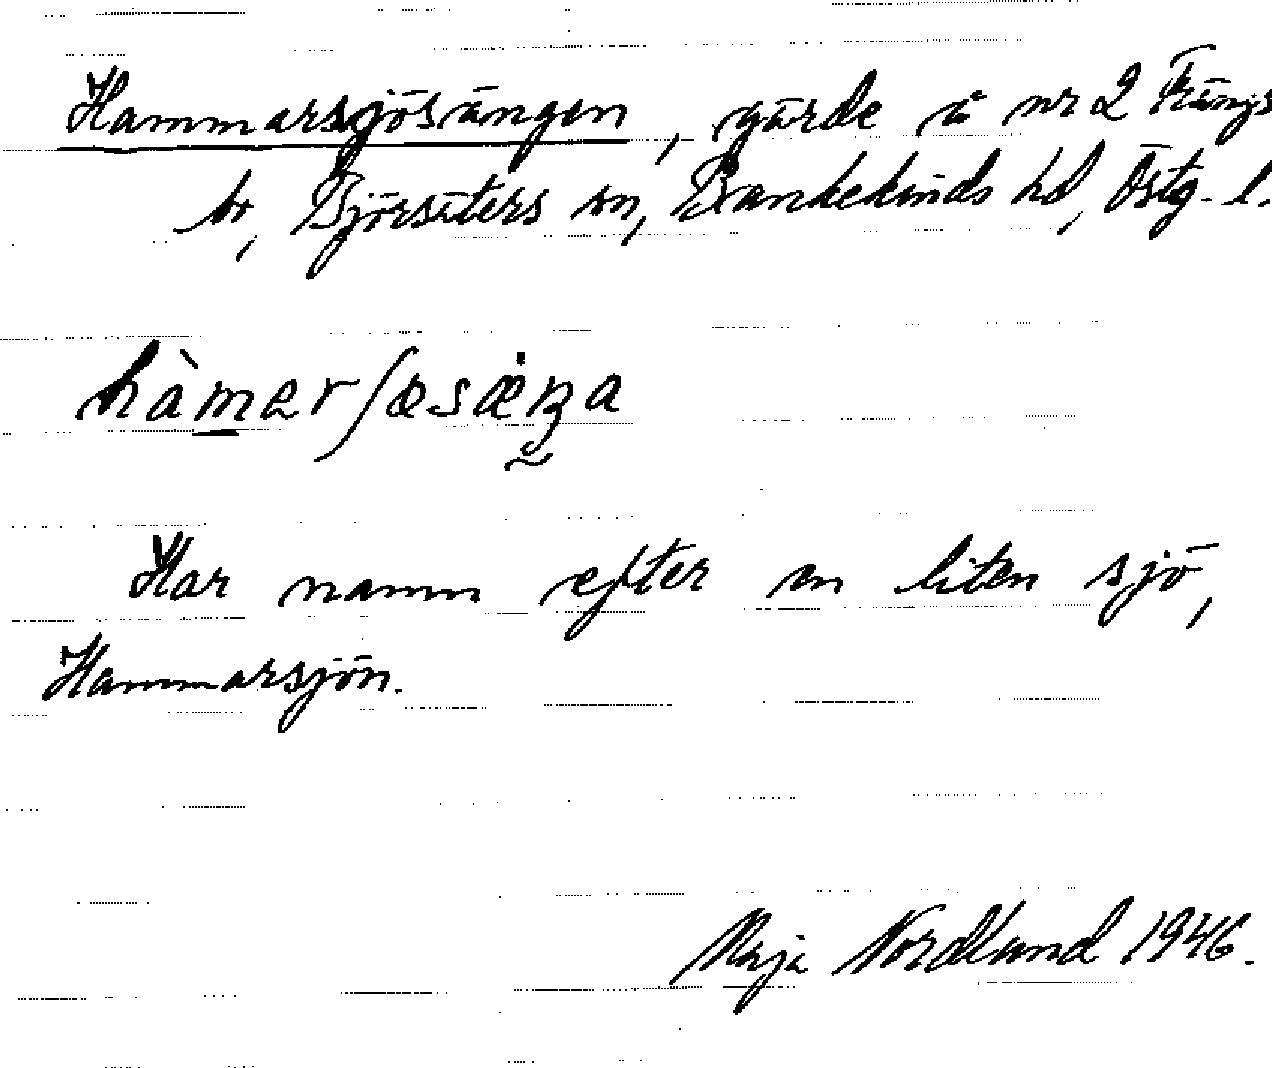 Hammarsjösängen, gärde å nr 2 Fängs
by, Björsäters sn, Bankekinds hd, Östg. l.
Har namn efter en liten sjö,
Hammarsjön.
Maja Nordlund 1946.